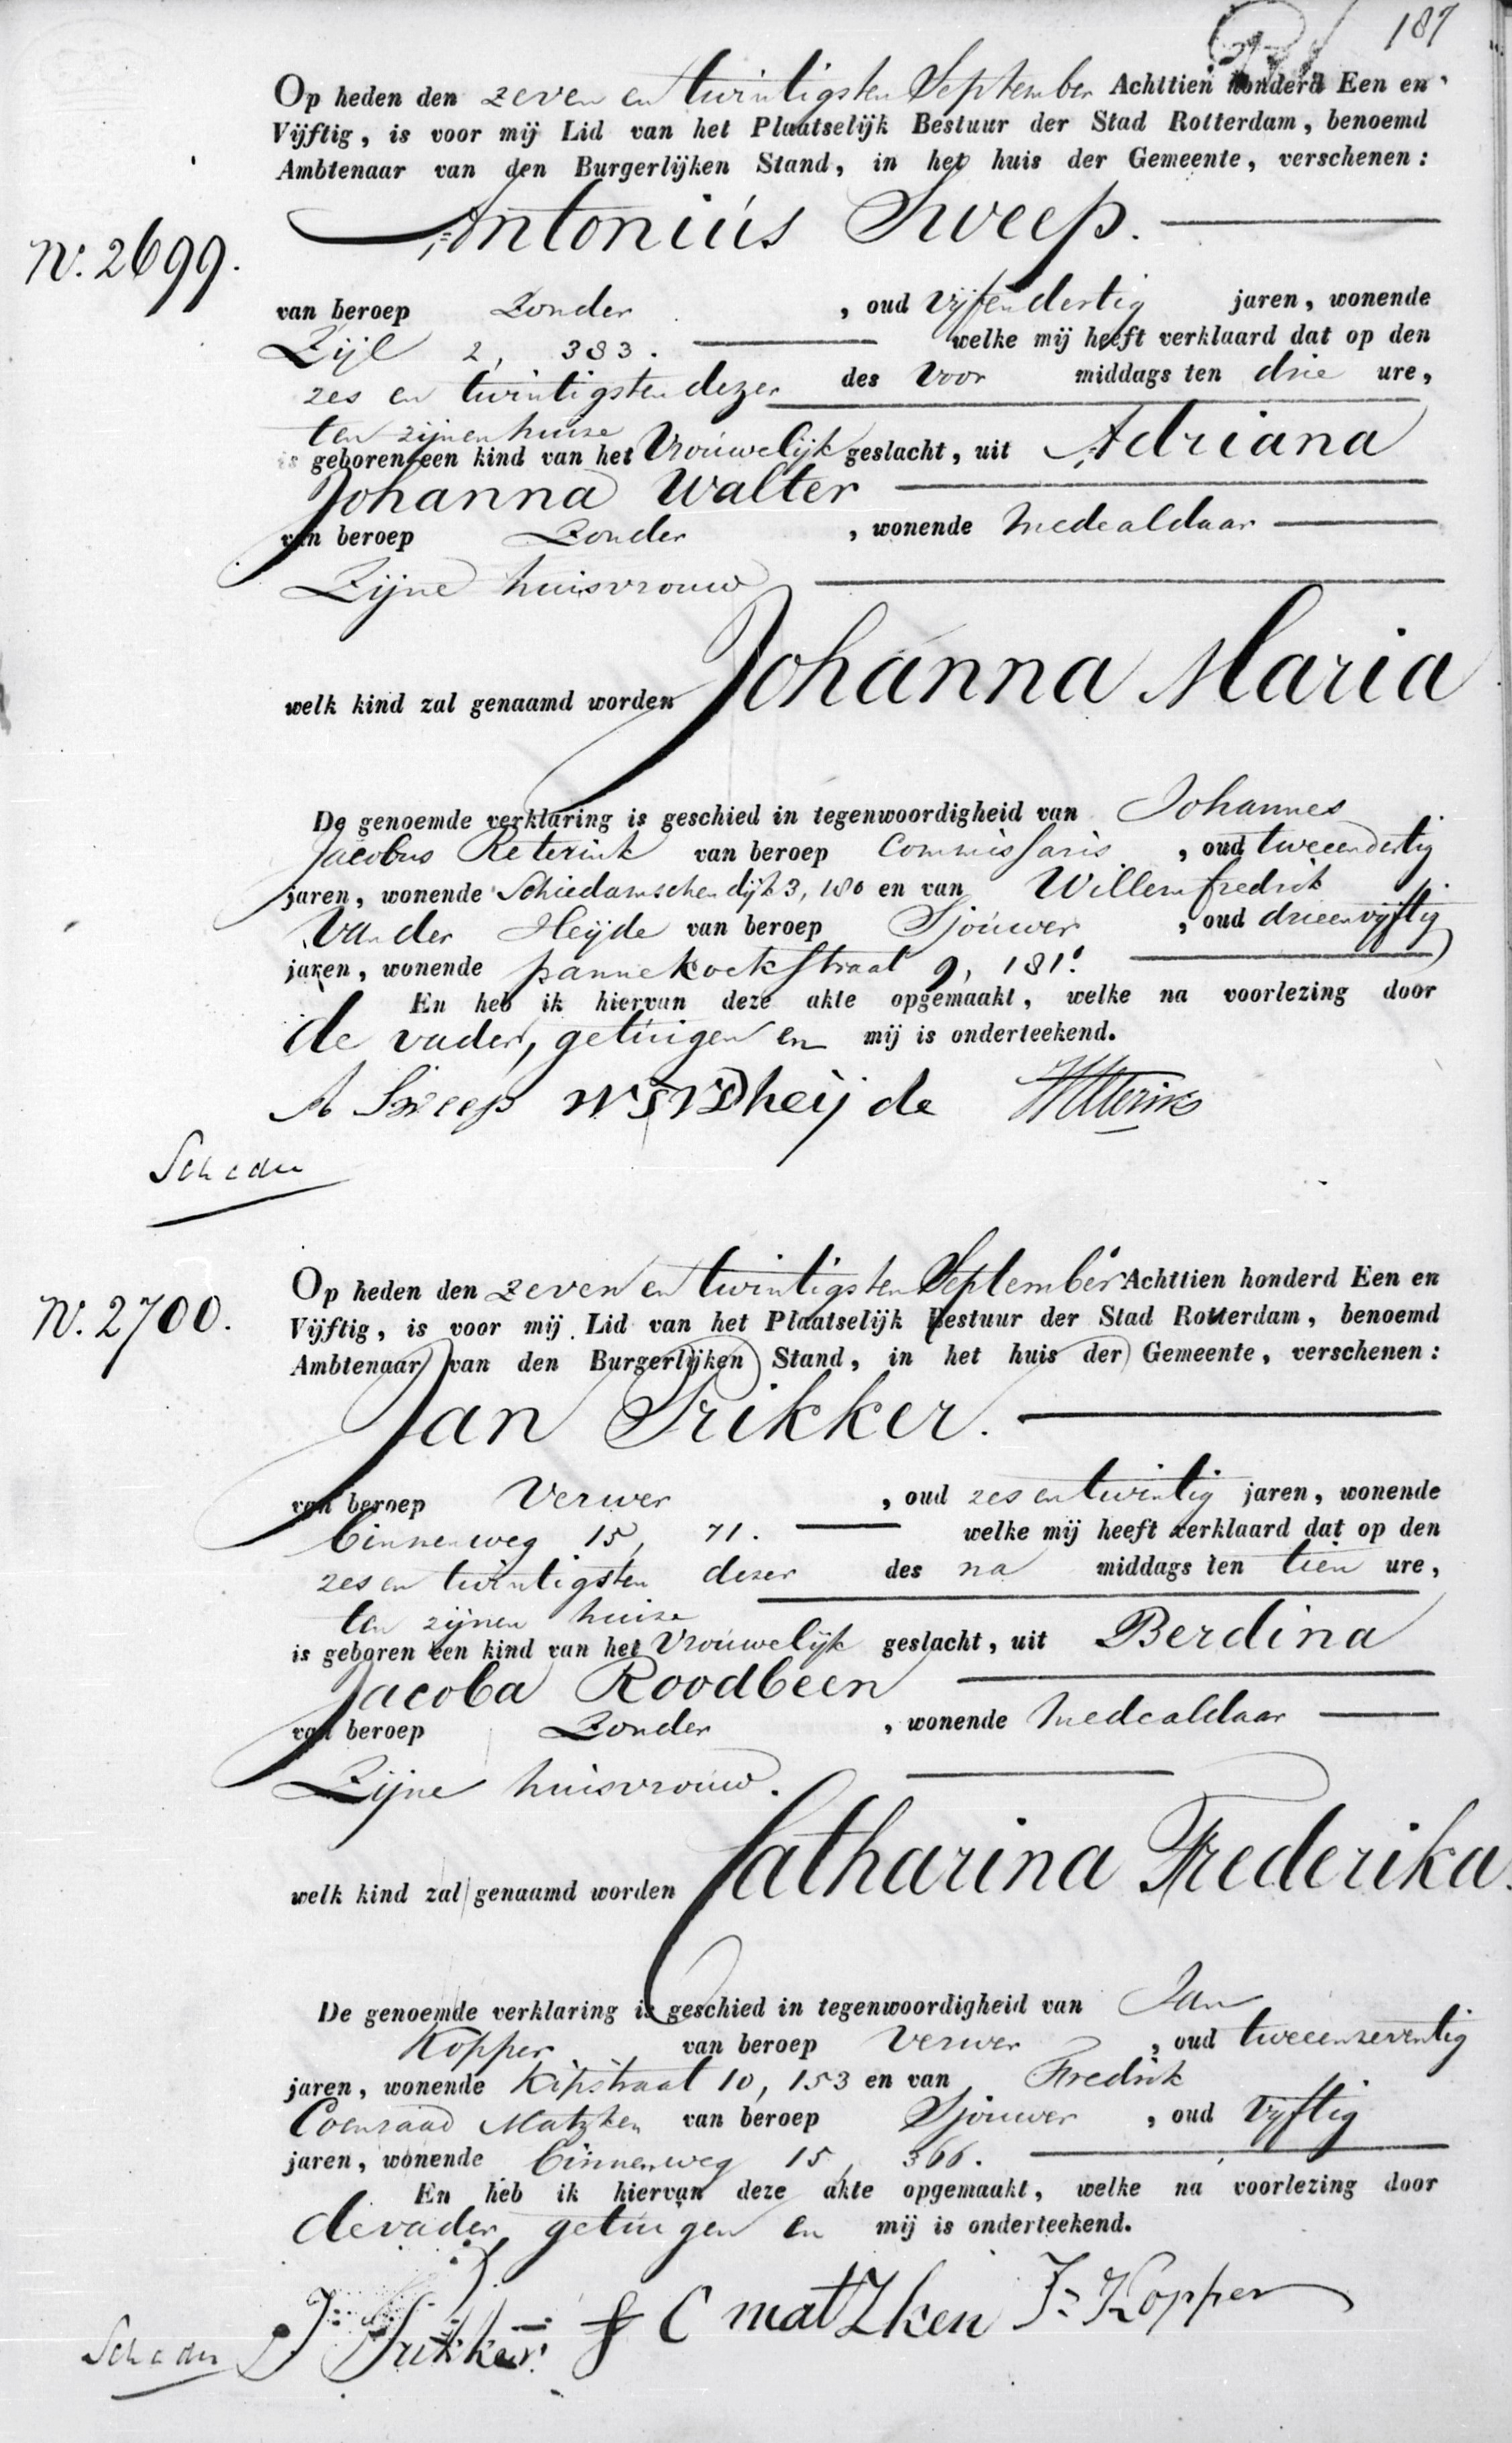 187
Op heden den zeven en twintigsten September Achttien honderd Een en
Vijftig, is voor mij Lid van het Plaatselijk Bestuur der Stad Rotterdam, benoemd
Ambtenaar van den Burgerlijken Stand, in het huis der Gemeente, verschenen:
Antonius Sweep.
N. 2699.
van beroep Zonder, oud Vijfendertig jaren, wonende
Zijl 2, 383. welke mij heeft verklaard dat op den
zes en twintigsten dezer des Voor middags ten drie ure,
ten zijnen huise
is geboren een kind van het Vrouwelijk geslacht, uit Adriana
Johanna Walter
van beroep Zonder, wonende medealdaar
Zijne huisvrouw
welk kind zal genaamd worden Johanna Maria
De genoemde verklaring is geschied in tegenwoordigheid van Johannes
Jacobus Reterink van beroep Commissaris, oud tweeendertig
jaren, wonende Schiedamschen dijk 3, 180 en van Willem fredrik
Van der Heijde van beroep Sjouwer, oud drieenvijftig
jaren, wonende pannekoekstraat 9, 181.
En heb ik hiervan deze akte opgemaakt, welke na voorlezing door
de vader, getuigen en mij is onderteekend.
A Sweep heijde
N. 2700.
Op heden den zeven en twintigsten September Achttien honderd Een en
Vijftig, is voor mij Lid van het Plaatselijk Bestuur der Stad Rotterdam, benoemd
Ambtenaar van den Burgerlijken Stand, in het huis der Gemeente, verschenen:
Jan Prikker.
van beroep Verwer, oud zes en twintig jaren, wonende
binnenweg 15, 71. welke mij heeft verklaard dat op den
zes en twintigsten dezer des na middags ten tien ure,
ten zijnen huise
is geboren een kind van het Vrouwelijk geslacht, uit Berdina
Jacoba Roodbeen
van beroep Zonder, wonende medealdaar
Zijne huisvrouw.
welk kind zal genaamd worden Catharina Frederika.
De genoemde verklaring is geschied in tegenwoordigheid van Jan
Kopper van beroep Verwer, oud tweeenzeventig
jaren, wonende Kipstraat 10, 153 en van Fredrik
Coenraad Matzken van beroep Sjouwer, oud Vijftig
jaren, wonende binnenweg 15, 366.
En heb ik hiervan deze akte opgemaakt, welke na voorlezing door
de vader, getuigen en mij is onderteekend.
J Prikker f C matzken J: Kopper